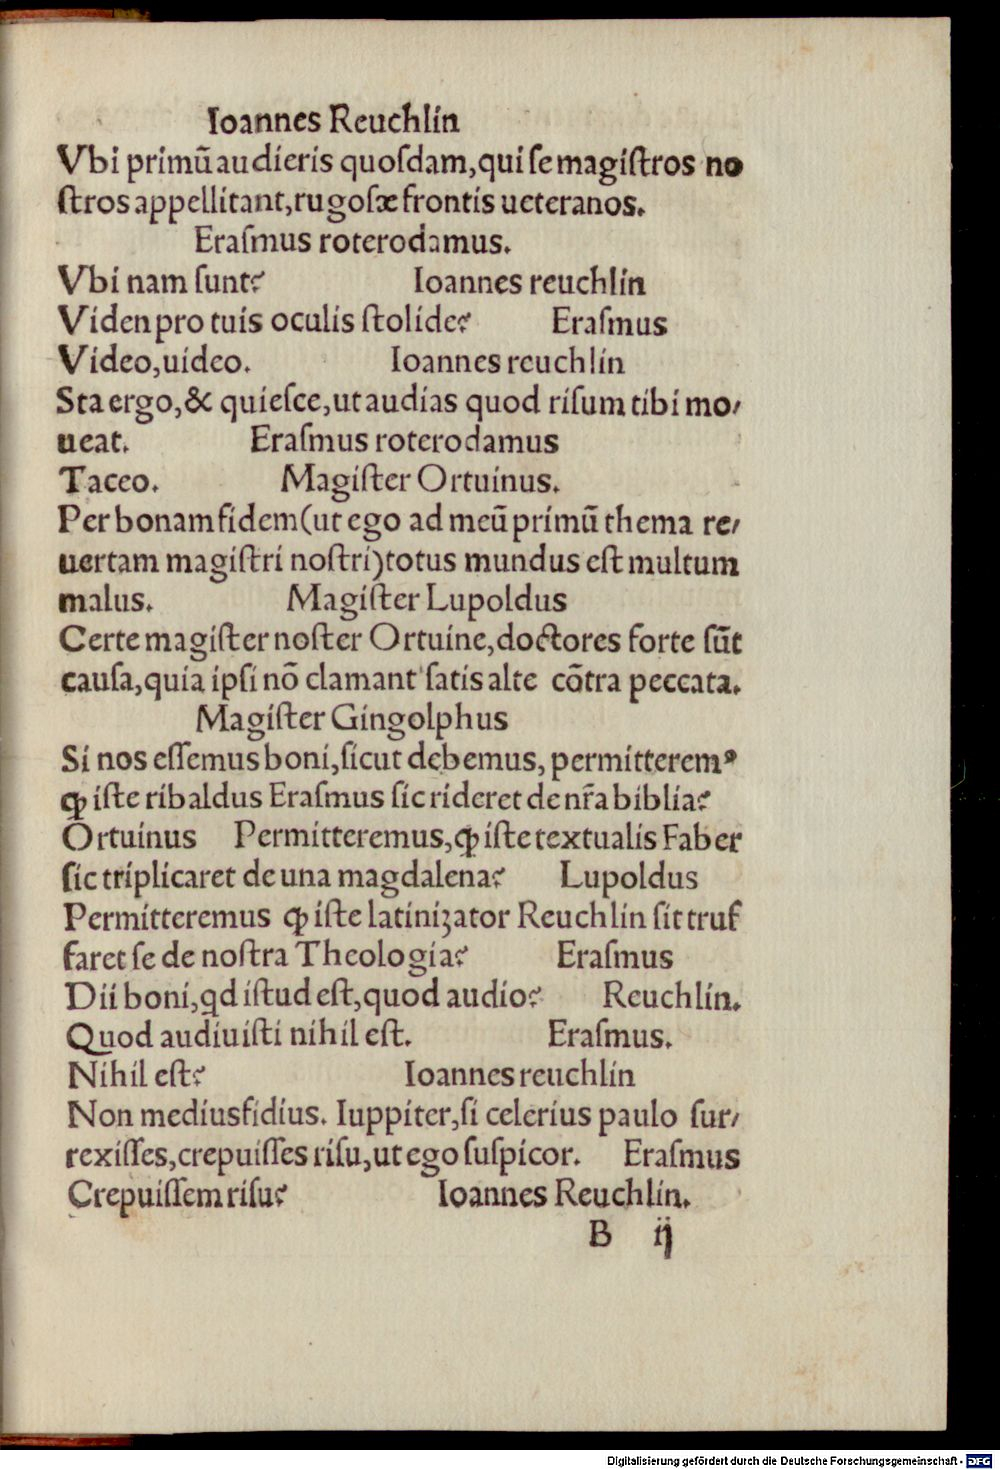 Ioannes Reuchlin
Vbi primū audieris quoſdam,qui ſe magiſtros no
ſtros appellitant,rugoſæ frontis ueteranos.
Eraſmus roterodamus.
Vbi nam ſunt? Ioannes reuchlin
Viden pro tuis oculis ſtolide? Eraſmus
Video,uideo. Ioannes reuchlin
Sta ergo,& quieſce,ut audias quod riſum tibi mo/
ueat. Eraſmus roterodamus
Taceo. Magiſter Ortuinus.
Per bonam fidem(ut ego ad meū primū thema re/
uertam magiſtri noſtri)totus mundus eſt multum
malus. Magiſter Lupoldus
Certe magiſter noſter Ortuine,doctores forte ſūt
cauſa,quia ipſi nō clamant ſatis alte cōtra peccata.
Magiſter Gingolphus
Si nos eſſemus boni,ſicut debemus, permitteremꝰ
ꝙ iſte ribaldus Eraſmus ſic rideret de nr̄a biblia?
Ortuinus Permitteremus,ꝙ iſte textualis Faber
ſic triplicaret de una magdalena? Lupoldus
Permitteremus ꝙ iſte latiniʒator Reuchlin ſit truf
faret ſe de noſtra Theologia? Eraſmus
Dii boni,qd iſtud eſt,quod audio? Reuchlin.
Quod audiuiſti nihil eſt. Eraſmus.
Nihil eſt? Ioannes reuchlin
Non mediusfidius. Iuppiter,ſi celerius paulo ſur/
rexiſſes,crepuiſſes riſu,ut ego ſuſpicor. Eraſmus
Crepuiſſem riſu? Ioannes Reuchlin.
B ij
Digitalisierung gefördert durch die Deutsche Forschungsgemeinschaft - DFG